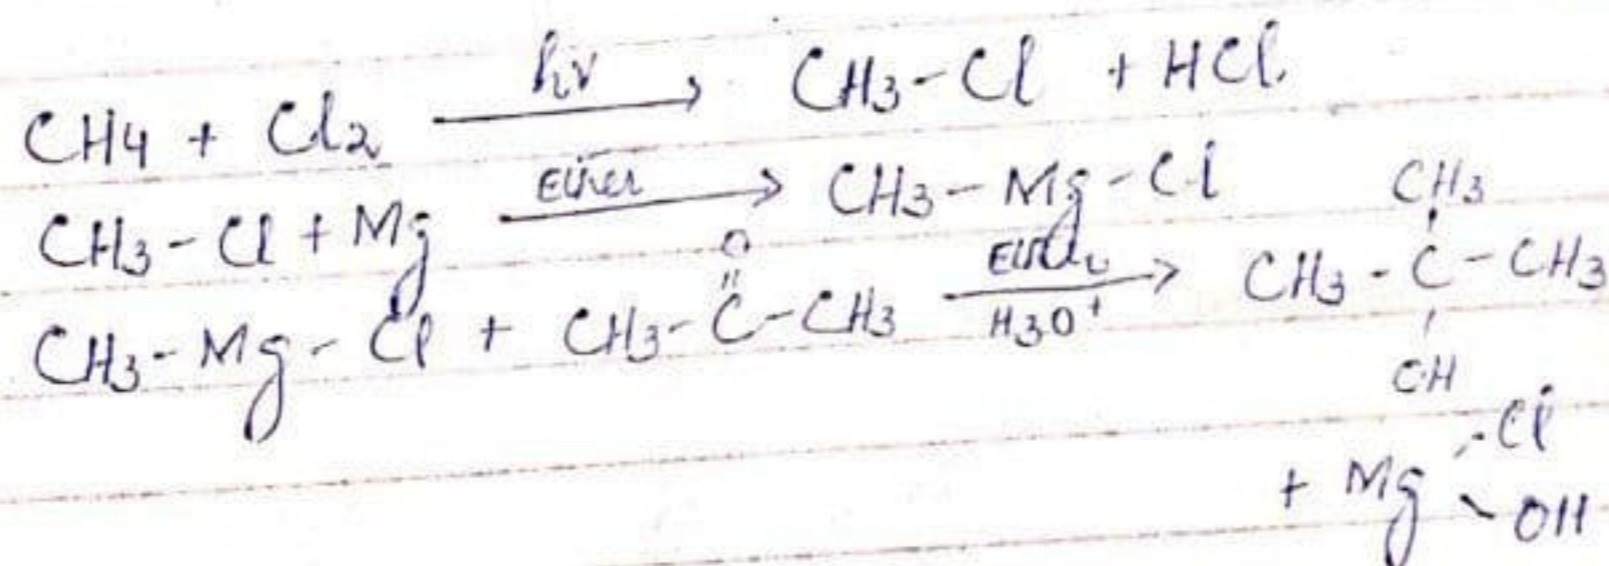 CH4 + Cl2 —hv→ CH3-Cl + HCl.
CH3-Cl + Mg —Ether→ CH3-Mg-Cl
CH3-Mg-Cl + CH3-C(=O)-CH3 —Ether, H3O+→ CH3-C(CH3)(CH)-CH3
+ Mg(Cl)(OH)